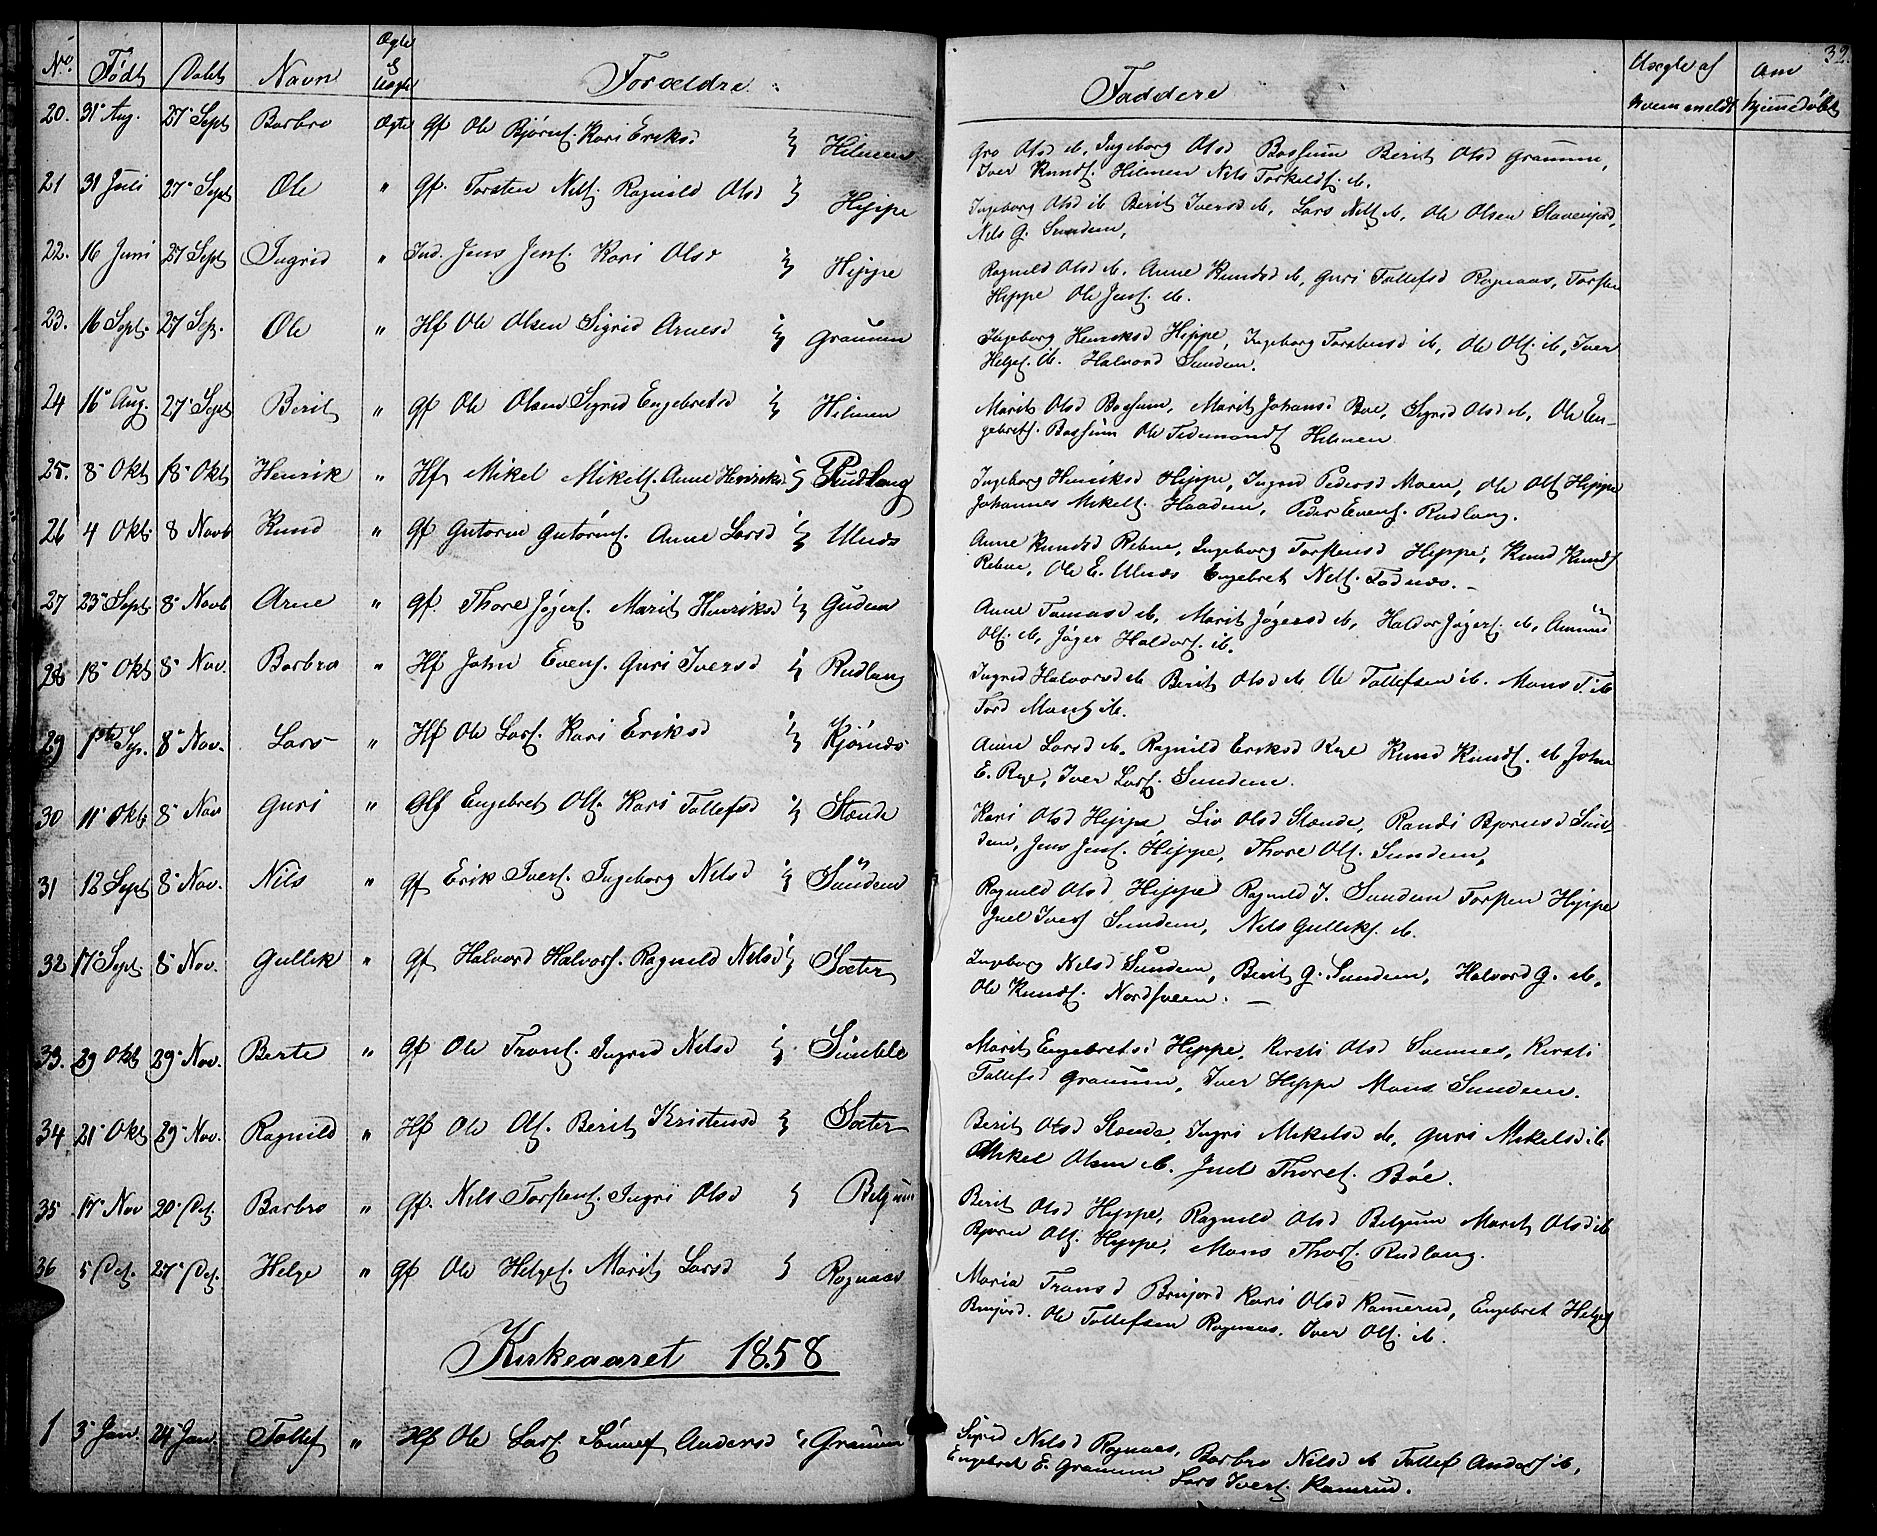 No. Født Døbt Navn Ægte & Uægte Forældre. Faddere Uægte af hvem meldt Om hjemedøbt 32.
20. 31 Aug. 27 Sept Barbro Ægte Gf Ole Bjørns. Kari Eriksd. Hilmen
Gro Olsd ib. Ingeborg Olsd Bossum Berit Olsd Graumm,
Iver Knuds. Hilmen Nils Torkelds. ib.
21 31 Juli 27 Sept Ole " Gf. Torsten Nils. Ragnild Olsd Hippe
Ingeborg Olsd ib Berit Iversd ib, Lars Nils. ib, Ole Olsen
Nils G. Sundem,
22. 16 Juni 27 Sept Ingrid " Ind. Jens Jens. Kari Olsd Hippe
Ragnild Olsd ib. Anne Knudsd ib, Guri Tollefsd Rognaas, Torsten
Hippe Ole Jens. ib.
23. 16 Sept. 27 Sep. Ole " Hf Ole Olsen Sigrid Arnesd Graumm
Ingeborg Henriksd Hippe, Ingeborg Torstensd ib, Ole Ols. ib, Iver
Helges. ib. Halvord Sundem.
24 16 Aug. 27 Sept Berit " Gf Ole Olsen Sigrid Engebretsd Hilmen
Marit Olsd Bossum, Marit Johansd Bøe, Sigrid Olsd ib, Ole En-
gebrets. Bossum Ole Tidemands Hilmen
25. 8 Okt 18 Okt Henrik " Hf Mikel Mikels. Anne Henriksd Rudlang
Ingeborg Henriksd Hippe, Ingrid Pedersd Moen, Ole Ols Hippe
Johannes Mikels. Haadem, Peder Evens. Rudlang.
26 4 Okt. 8 Novb Knud " Gf Gutorm Gutorms. Anne Larsd Ulnæs
Anne Knudsd Rebne, Ingeborg Torstensd Hippe, Knud Knuds
Rebne, Ole E. Ulnæs Engebret Nils. Fodnæs.
27 23 Sept 8 Novb Arne " Gf. Thore Jøgers. Marit Henriksd Gudem
Anne Tomasd ib, Marit Jøgersd ib, Haldor Jøgers. ib,
Ols. ib, Jøger Haldors. ib.
28 18 Okt 8 Nov. Barbro " Hf John Evens. Guri Iversd Rudlang
Ingrid Halvorsd ib Berit Olsd ib Ole Tollefsen ib. Mons T. ib
Tord Mons. ib.
29 8 Nov. Lars " Hf Ole Lars. Kari Eriksd Kjørnæs
Anne Larsd ib. Ragnild Eriksd Rye Knud Knuds. ib, John
E. Rye, Iver Lars. Sundem.
30 11 Okt 8 Nov Guri " Gf Engebret Ols. Kari Tollefsd Stænde
Kari Olsd Hippe, Liv Olsd Stænde, Randi Bjørnsd Sun-
dem, Jens Jens. Hippe, Thore Ols. Sundem,
31 12 Sept 8 Nov. Nils " Gf Erik Ivers. Ingeborg Nilsd Sundem
Ragnild Olsd Hippe Ragnild I. Sundem Torsten Hippe
Juel Ivers Sundem, Nils Gulliks. ib.
32 17 Sept. 8 Nov. Gullik " Gf Halvord Halvors. Ragnild Nilsd Sæter
Ingeborg Nilsd Sundem, Berit G. Sundem, Halvord G. ib.
Ole Knuds. Nordsveen.
33. 29 Okt 29 Nov. Berte " Gf Ole Trons. Ingrid Nilsd
Marit Engebretsd Hippe, Kirsti Olsd Svennes, Kirsti
Tollefsd Graumm, Iver Hippe Mons Sundem.
34 21 Okt 29 Nov. Ragnild " Hf Ole Ols. Berit Kristensd Sæter
Berit Olsd Stænde, Ingri Mikelsd ib, Guri Mikelsd ib
Mikel Olsen ib. Juel Thores. Bøe.
35 17 Nov 20 Det. Barbro " Gf. Nils Torstens. Ingri Olsd Belgum
Berit Olsd Hippe, Ragnild Olsd Belgum Marit Olsd ib
Bjørn Ols. Hippe, Mons Thors. Rudlang.
36 5 Det. 27 Det. Helge " Gf Ole Helges. Marit Larsd Rognaas
Maria Transd Brujord Kari Olsd Kamerud, Engebret Helges
Brujord. Ole Tollefsen Rognaas. Iver Ols. ib.
Kirkeaaret 1858
1 3 Jan. 24 Jan. Tollef " Hf Ole Lars. Sønnef Andersd Graumm
Sigrid Nilsd Rognaas, Barbro Nilsd ib Tollef Anders ib,
Engebret E. Graumm Lars Ivers. Kamrud.